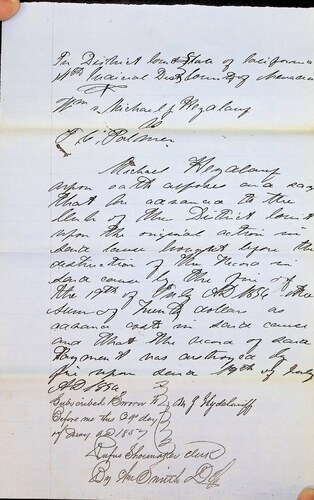 In District Court State of California
14th Judicial Dist County of Nevada
Wm & Michael
vs
T. C. Palmer
Michael
upon oath deposes and says
that he advanced to the
Clerk of the District Court
upon the original action in
said cause brought before the
destruction of the records in
said cause by the fire of
the 19th of July AD 1856 the
sum of Twenty dollars as
advance costs in said cause
and that the record of said
payment was destroyed by
fire upon said 19th of July
AD 1856
Subscribed & sworn to
before me the day
of May AD 1857
Rufus Shoemaker Clerk
By Smith